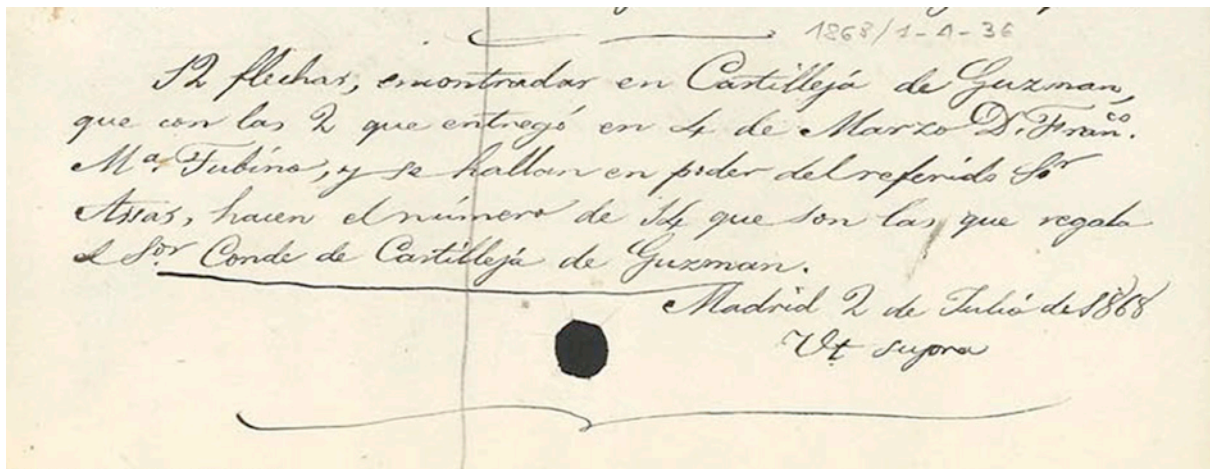 1868/1-A-36
12 flechas, encontradas en Castilleja de Guzman,
que con las 2 que entregó en 4 de Marzo D. Franco.
Ma. Tubino, y se hallan en poder del referido Sor
Assas, hacen el número de 14 que son las que regala
el Sor. Conde de Castilleja de Guzman.
Madrid 2 de Julio de 1868
Ut supra